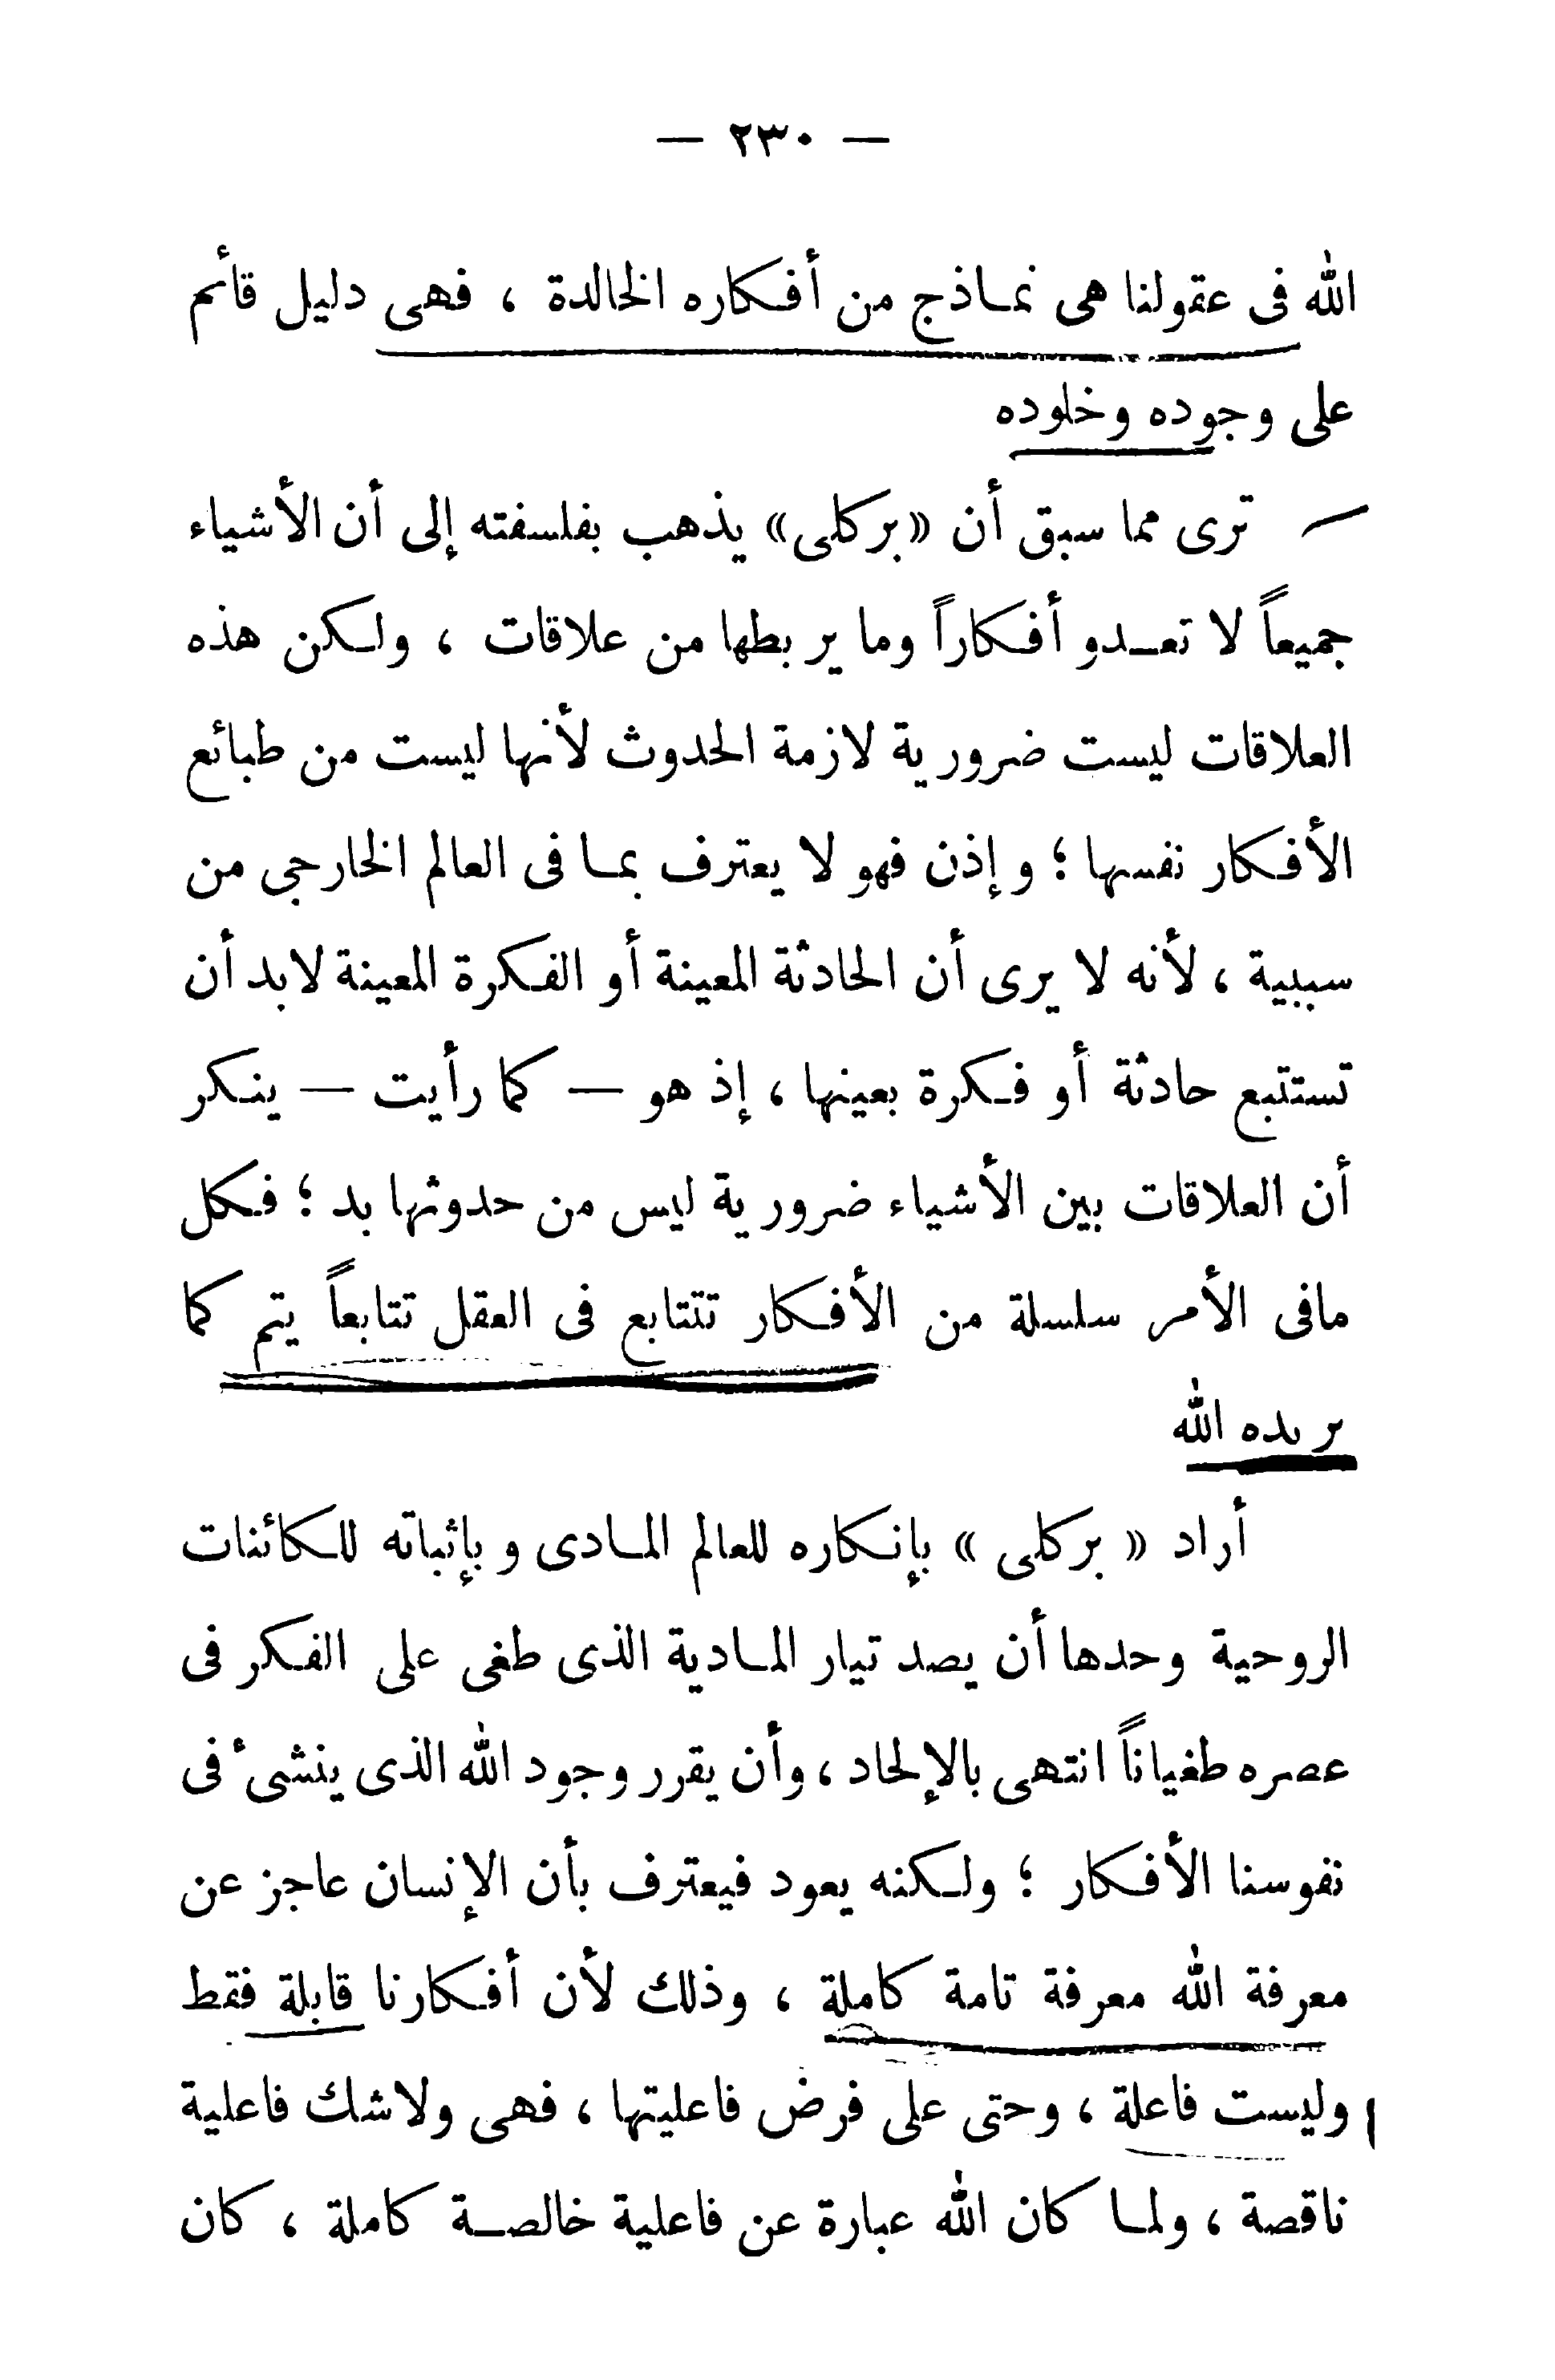 — ٢٣٠ —
الله فى عقولنا هى نمـاذج من أفـكاره الخالدة ، فهى دليل قائم
على وجوده وخلوده
ترى مما سبق أن «بركلى» يذهب بفلسفته إلى أن الأشياء
جميعاً لا تعـدو أفـكاراً وما يربطها من علاقات ، ولـكن هذه
العلاقات ليست ضرورية لازمة الحدوث لأنها ليست من طبائع
الأفـكار نفسها ؛ وإذن فهو لا يعترف بمـا فى العالم الخارجى من
سببية ، لأنه لا يرى أن الحادثة المعينة أو الفـكرة المعينة لابد أن
تستتبع حادثة أو فـكرة بعينها ، إذ هو — كما رأيت — ينـكر
أن العلاقات بين الأشياء ضرورية ليس من حدوثها بد ؛ فـكل
مافى الأمر سلسلة من الأفـكار تتتابع فى العقل تتابعاً يتم كما
يريده الله
أراد « بركلى » بإنـكاره للعالم المـادى وبإثباته للـكائنات
الروحية وحدها أن يصد تيار المـادية الذى طغى على الفـكر فى
عصره طغياناً انتهى بالإلحاد ، وأن يقرر وجود الله الذى ينشئ فى
نفوسنا الأفـكار ؛ ولـكنه يعود فيعترف بأن الإنسان عاجز عن
معرفة الله معرفة تامة كاملة ، وذلك لأن أفـكارنا قابلة فقط
وليست فاعلة ، وحتى على فرض فاعليتها ، فهى ولاشك فاعلية
ناقصة ، ولمـا كان الله عبارة عن فاعلية خالصـة كاملة ، كان